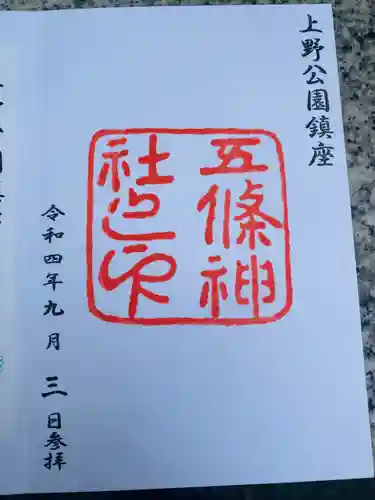 上野公園鎮座
五條神
社之印
令和四年九月三日参拝